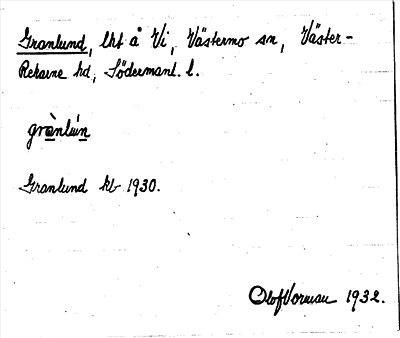 Granlund, lht å Vi, Västermo sn, Väster-
Rekarne hd, Södermanl. l.
grànlún
Granlund kb 1930.
Olof Vorman 1932.